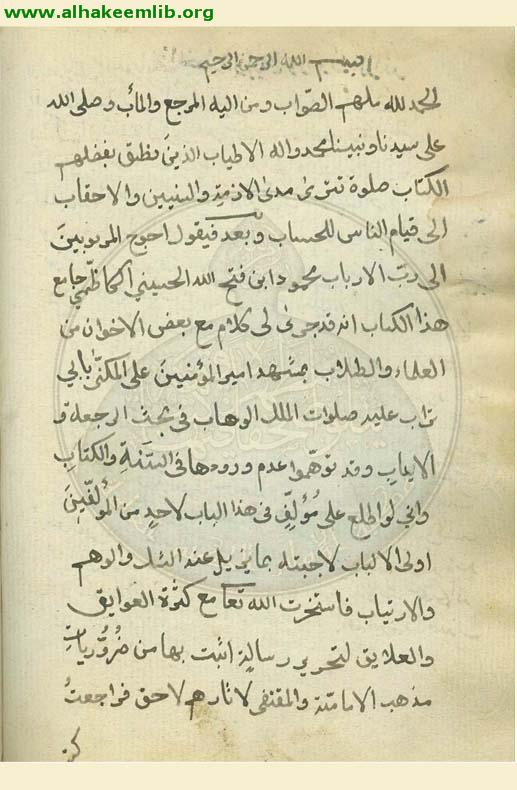 www.alhakeemlib.org
بسم الله الرحمن الرحيم
الحمد لله ملهم الصواب ومن اليه المرجع والمأب وصلى الله
على سيدنا ونبينا محمد واله الاطياب الذين نطق بفضلهم
الكتاب صلوة تترى مدى الازمنة والسنين والاحقاب
الى قيام الناس للحساب وبعد فيقول احوج المربوبين
الى رب الارباب محمود ابن فتح الله الحسيني الكاظمي جامع
هذا الكتاب انه قد جرى لى كلام مع بعض الاخوان من
العلماء والطلاب بمشهد امير المؤمنين على المكنى بابي
تراب عليه صلوات الملك الوهاب فى بحث الرجعة و
الاياب وقد توهموا عدم ورودها فى السنة والكتاب
واني لو اطلع على مؤلف فى هذا الباب لاحد من المؤلفين
اولى الالباب لاجبته بما يزيل عنه الشك والوهم
والارتياب فاستخرت الله تعا مع كثرة العوايق
والعلايق لتحرير رسالة اثبت بها من ضروريات
مذهب الامامية والمقتفى لاثارهم لاحق فراجعت